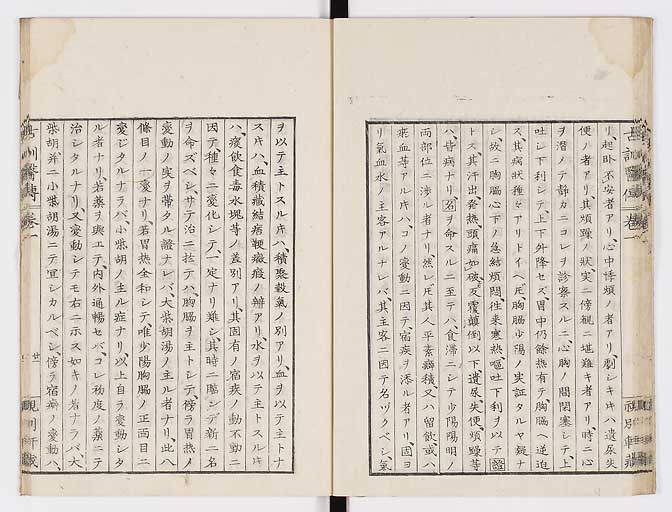 リ起臥不安者アリ心中悸煩ノ者アリ劇シキハ遺尿失
便ノ者アリ其煩躁ノ狀実ニ傍観ニ堪難キ者アリ時ニ心
ヲ潜ノテ静カニコレヲ診察スルニ心胸ノ間閉塞シテ上
吐シ下利シテ上下外降セズ胃中仍餘熱有テ胸脇ヘ逆迫
ス其病狀種々アリトイヘ𪜈胸脇少陽ノ実証タルヤ疑ナ
シ故ニ胸脇心下ノ急結煩悶往来寒熱嘔吐下利ヲ以テ證
トス其汗出発熱頭痛如破反覆顛倒以下遺尿失便煩躁等
ハ皆病ナリ名ヲ命スルニ至テハ食滞ニシテ少陽陽明ノ
両部位ニ渉ル者ナリ然レ𪜈其人平素癖積又ハ留飲或ハ
瘀血等アル𪜈ハコノ変動ニ因テ宿疾ヲ添ル者アリ固ヨ
リ氣血水ノ主客アルナレバ其主客ニ因テ名ヅクベシ氣
ヲ以テ主トスル𪜈ハ積聚穀氣ノ別アリ血ヲ以テ主トナ
ス𪜈ハ血積蔵結痞鞕癥瘕ノ辨アリ水ヲ以テ主トスル𪜈
ハ痰飲食毒水塊等ノ差別アリ其固有ノ宿疾人動不動ニ
因テ種々ニ変化シテ一定ナリ難シ其時ニ臨ンデ新二名
ヲ命ズベシサテ治ニ扵テハ胸脇ヲ主トシテ傍ラ胃熱ノ
変動ノ実ヲ帯タル證ナレバ大柴胡湯ノ主ル者ナリ此ハ
條目ノ一変ナリ若胃熱全和シテ唯少陽胸脇ノ正面目ニ
変ジタルナラバ小柴胡ノ主ル症ナリ以上自ラ変動シタ
ル者ナリ若蒸ヲ與エテ内外通暢セバコレ初度ノ蒸ニテ
治シタルナリ又変動シテモ右ニ示ス如キノ若ナラバ大
柴胡并ニ小柴胡湯ニテ宜シカルベシ傍ラ宿癖ノ変動ハ